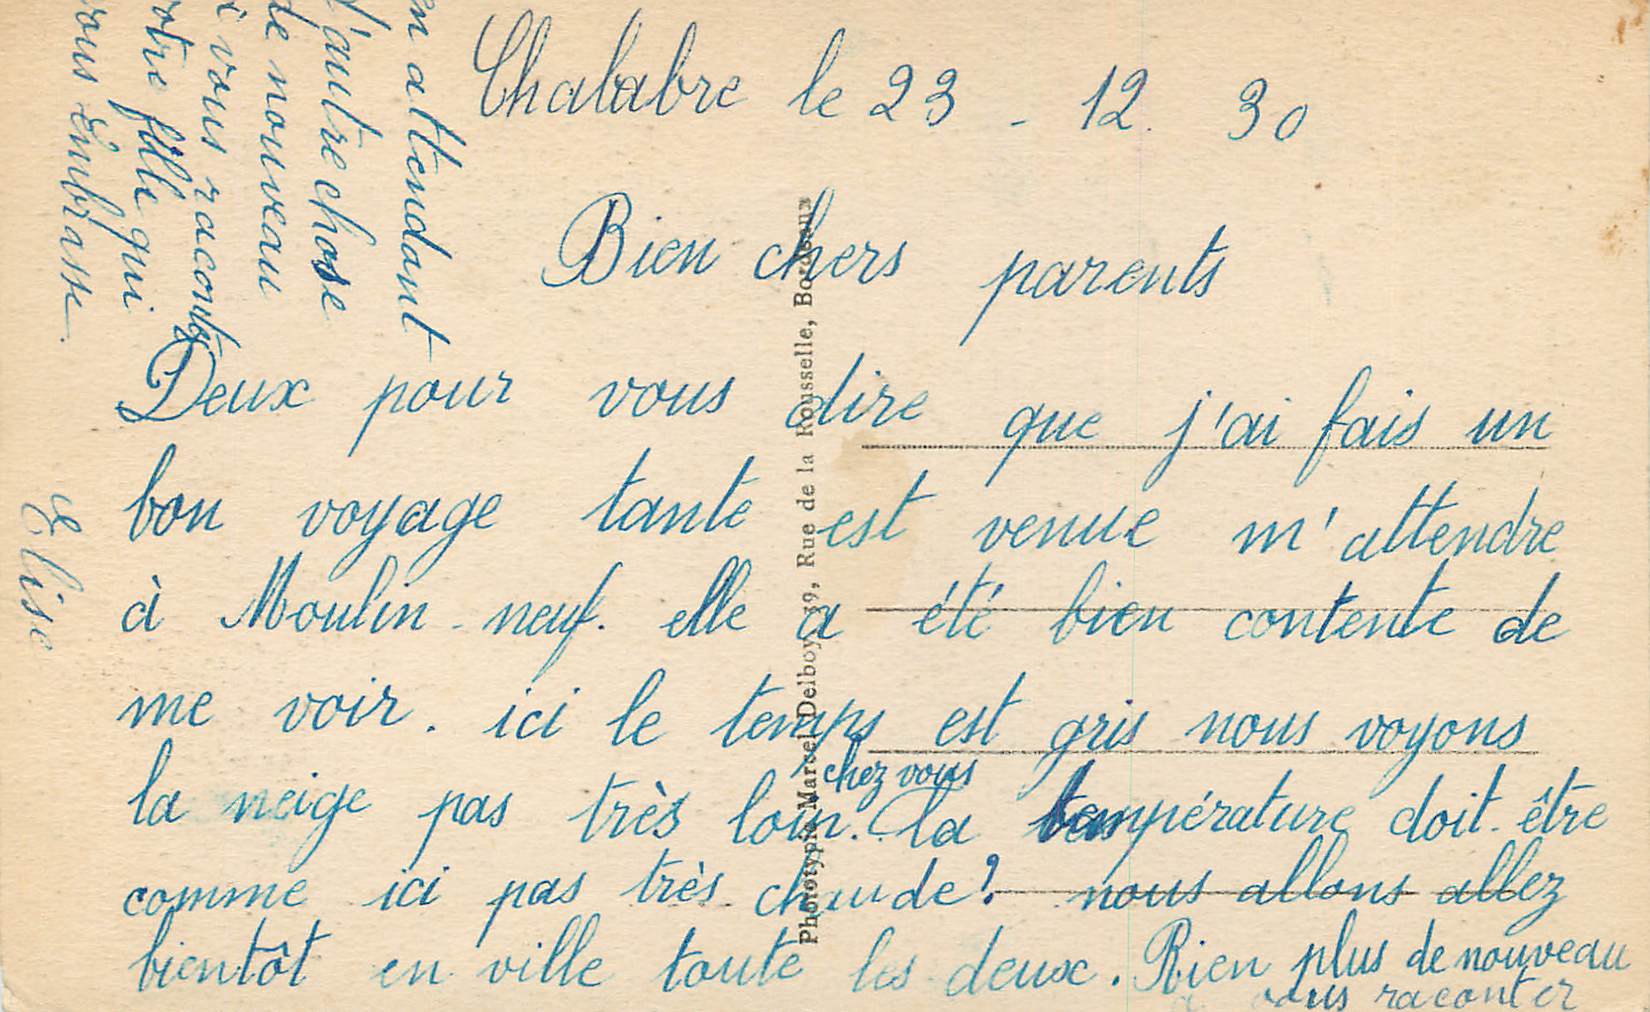 Chalabre le 23 - 12. 30
Bien chers parents
Deux pour vous dire que j'ai fais un
bon voyage tante est venue m'attendre
à Moulin-neuf. elle a été bien contente de
me voir. ici le temps est gris nous voyons
la neige pas très loin. chez vous la température doit être
comme ici pas très chaude? nous allons allez
bientôt en ville toute les deux. Rien plus de nouveau
a vous raconter
en attendant
d'autre chose
de nouveau
à vous raconter
votre fille qui
vous embrasse.
Elise
Phototypie Marcel Delboy, 39, Rue de la Rousselle, Bordeaux